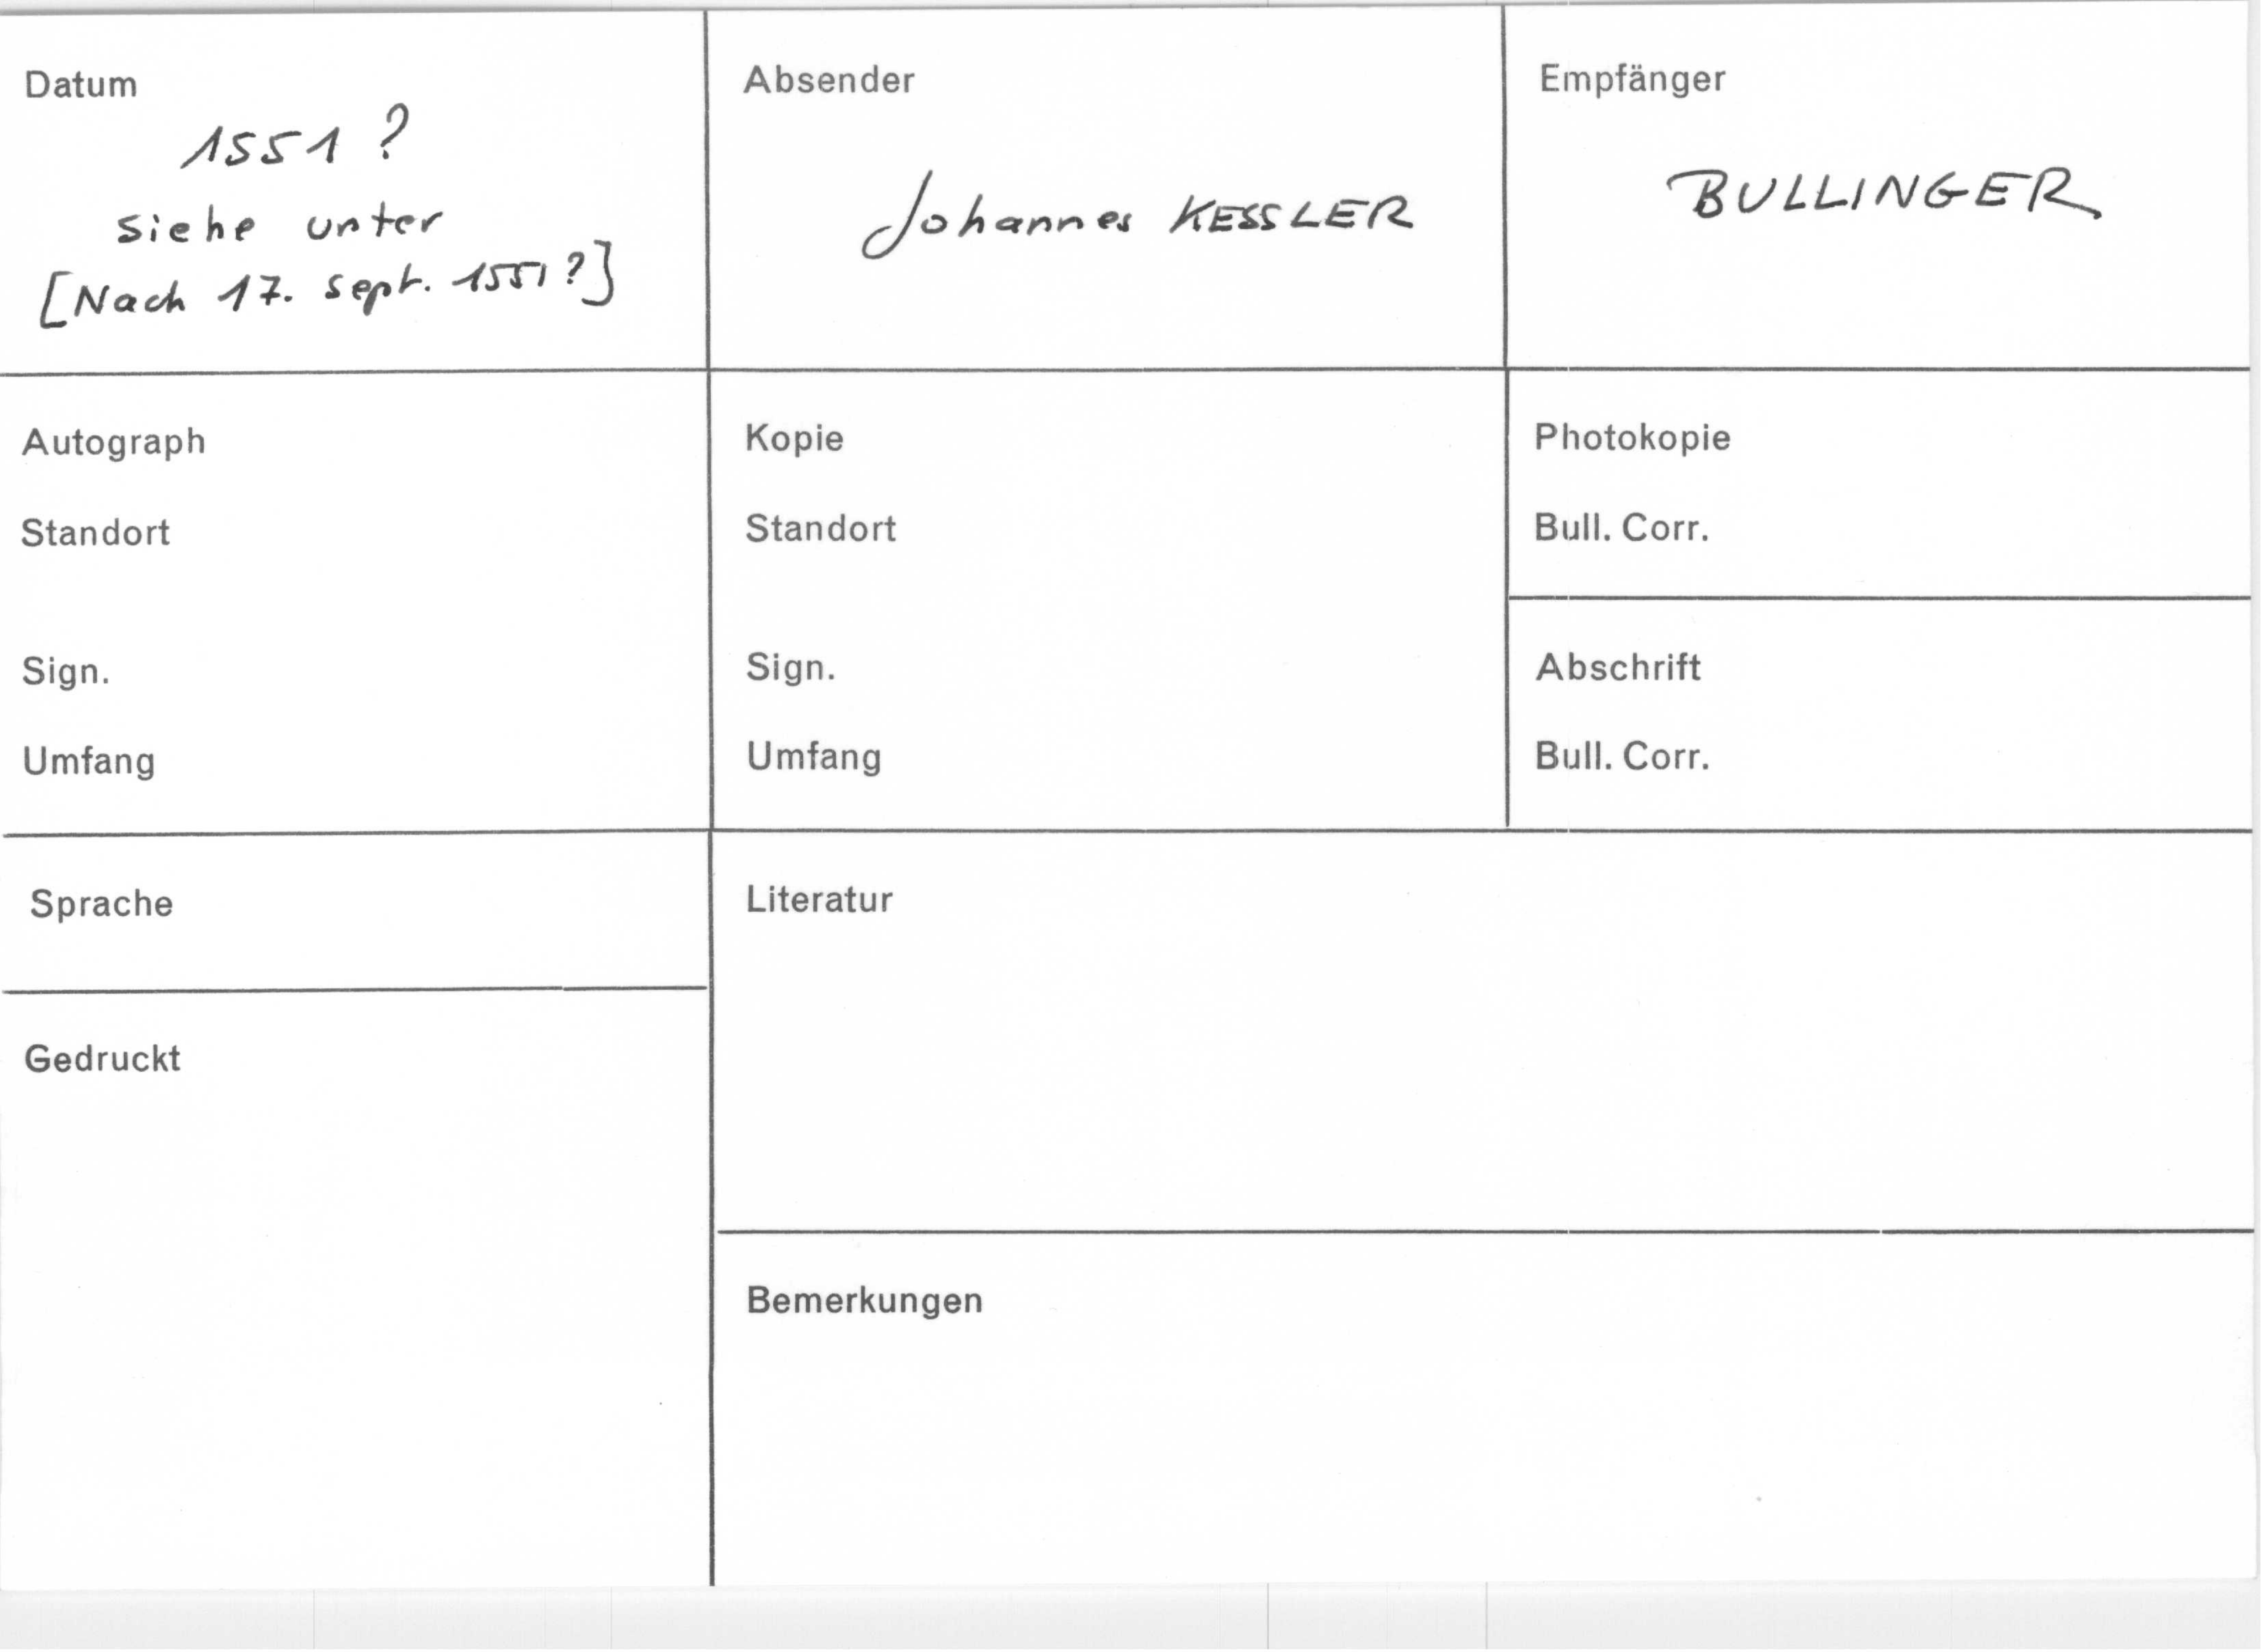 Datum
1551 ?
siehe unter
[Nach 17. Sept. 1551 ?]
Absender
Johannes KESSLER
Empfänger
BULLINGER
Autograph
Standort
Sign.
Umfang
Kopie
Standort
Sign.
Umfang
Photokopie
Bull. Corr.
Abschrift
Bull. Corr.
Sprache
Gedruckt
Literatur
Bemerkungen